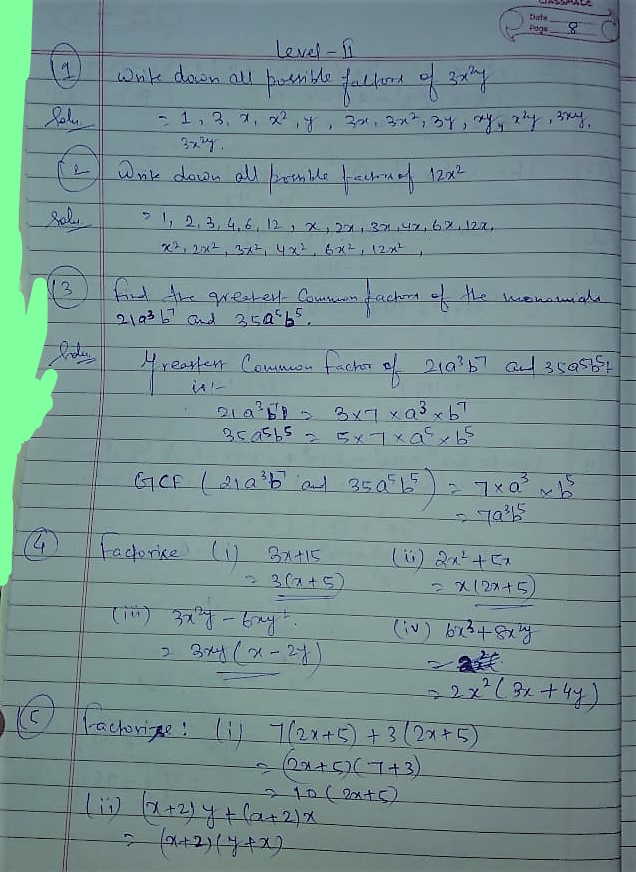 CLASSMATE
Date
Page 8
Level-II
1 Write down all possible factors of 3x²y
Solu = 1, 3, x, x², y, 3x, 3x², 3y, xy, x²y, 3xy,
3x²y.
2 Write down all possible factors of 12x²
Solu = 1, 2, 3, 4, 6, 12, x, 2x, 3x, 4x, 6x, 12x,
x², 2x², 3x², 4x², 6x², 12x²,
3 Find the greatest Common factors of the monomials
21a³b⁷ and 35a⁵b⁵.
Solu Greatest Common Factor of 21a³b⁷ and 35a⁵b⁵
is:-
21a³b⁷ = 3×7×a³×b⁷
35a⁵b⁵ = 5×7×a⁵×b⁵
GCF (21a³b⁷ and 35a⁵b⁵) = 7×a³×b⁵
= 7a³b⁵
4 Factorise (i) 3x+15 (ii) 2x²+5x
= 3(x+5) = x(2x+5)
(iii) 3x²y - 6xy². (iv) 6x³+8x²y
= 3xy(x-2y)
= 2x²(3x+4y)
5 Factorize: (i) 7(2x+5)+3(2x+5)
= (2x+5)(7+3)
= 10(2x+5)
(ii) (x+2)y+(x+2)x
= (x+2)(y+x)